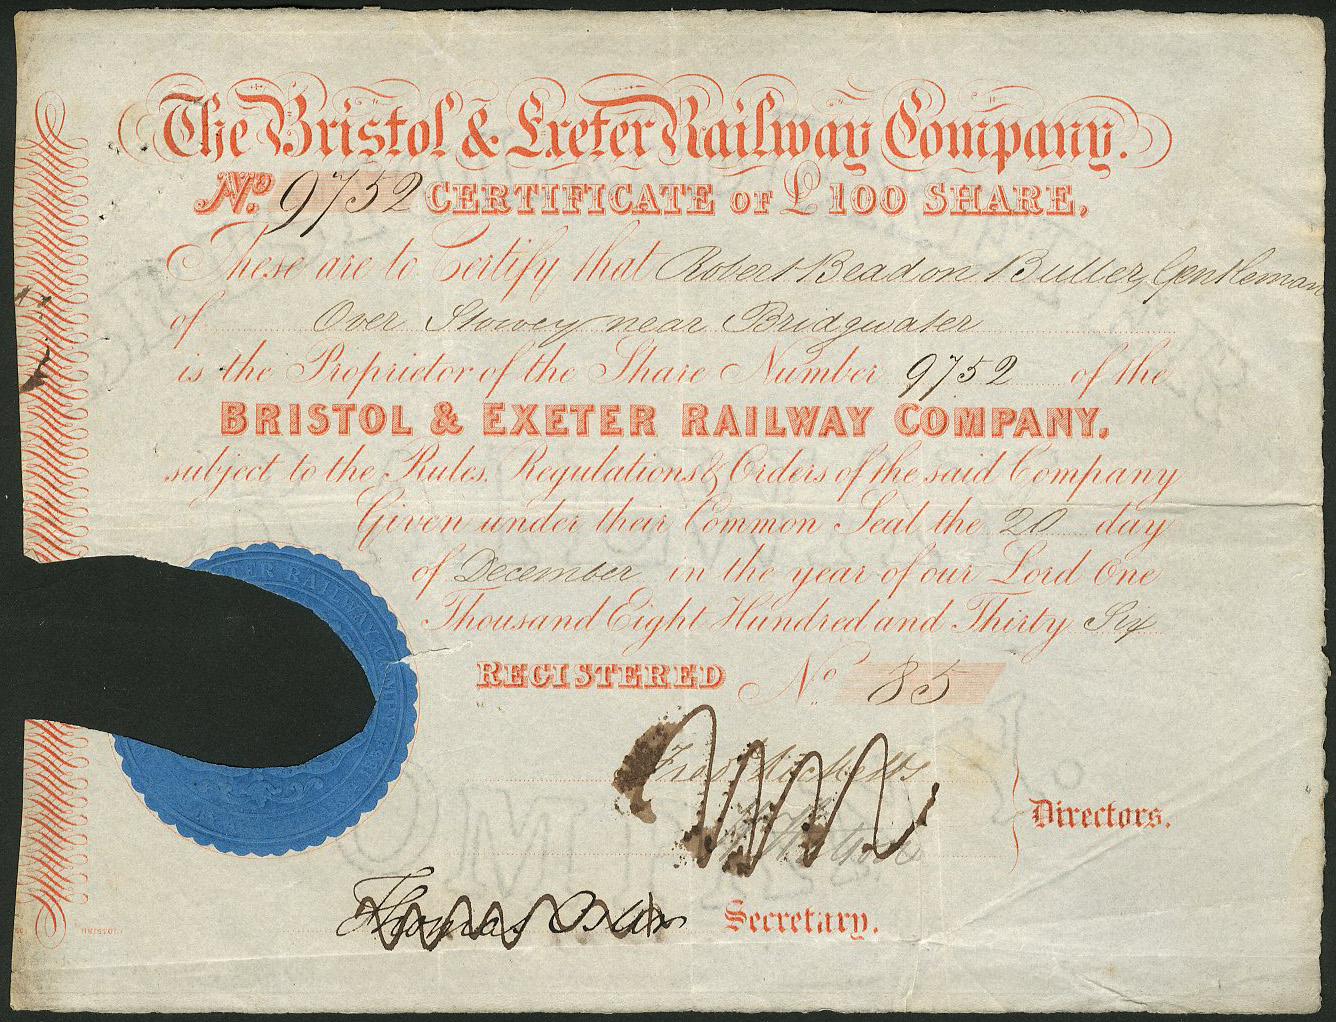 The Bristol & Exeter Railway Company.
No. 9752 CERTIFICATE OF £100 SHARE,
These are to Certify that Robert Beadon Buller, Gentleman
of Over Stowey near Bridgwater
is the Proprietor of the Share Number 9752 of the
BRISTOL & EXETER RAILWAY COMPANY,
subject to the Rules, Regulations & Orders of the said Company
Given under their Common Seal the 20 day
of December in the year of our Lord One
Thousand Eight Hundred and Thirty Six
REGISTERED No. 85
Fred Ricketts
Directors.
Thomas Secretary.
RAILWAY
BRISTOL